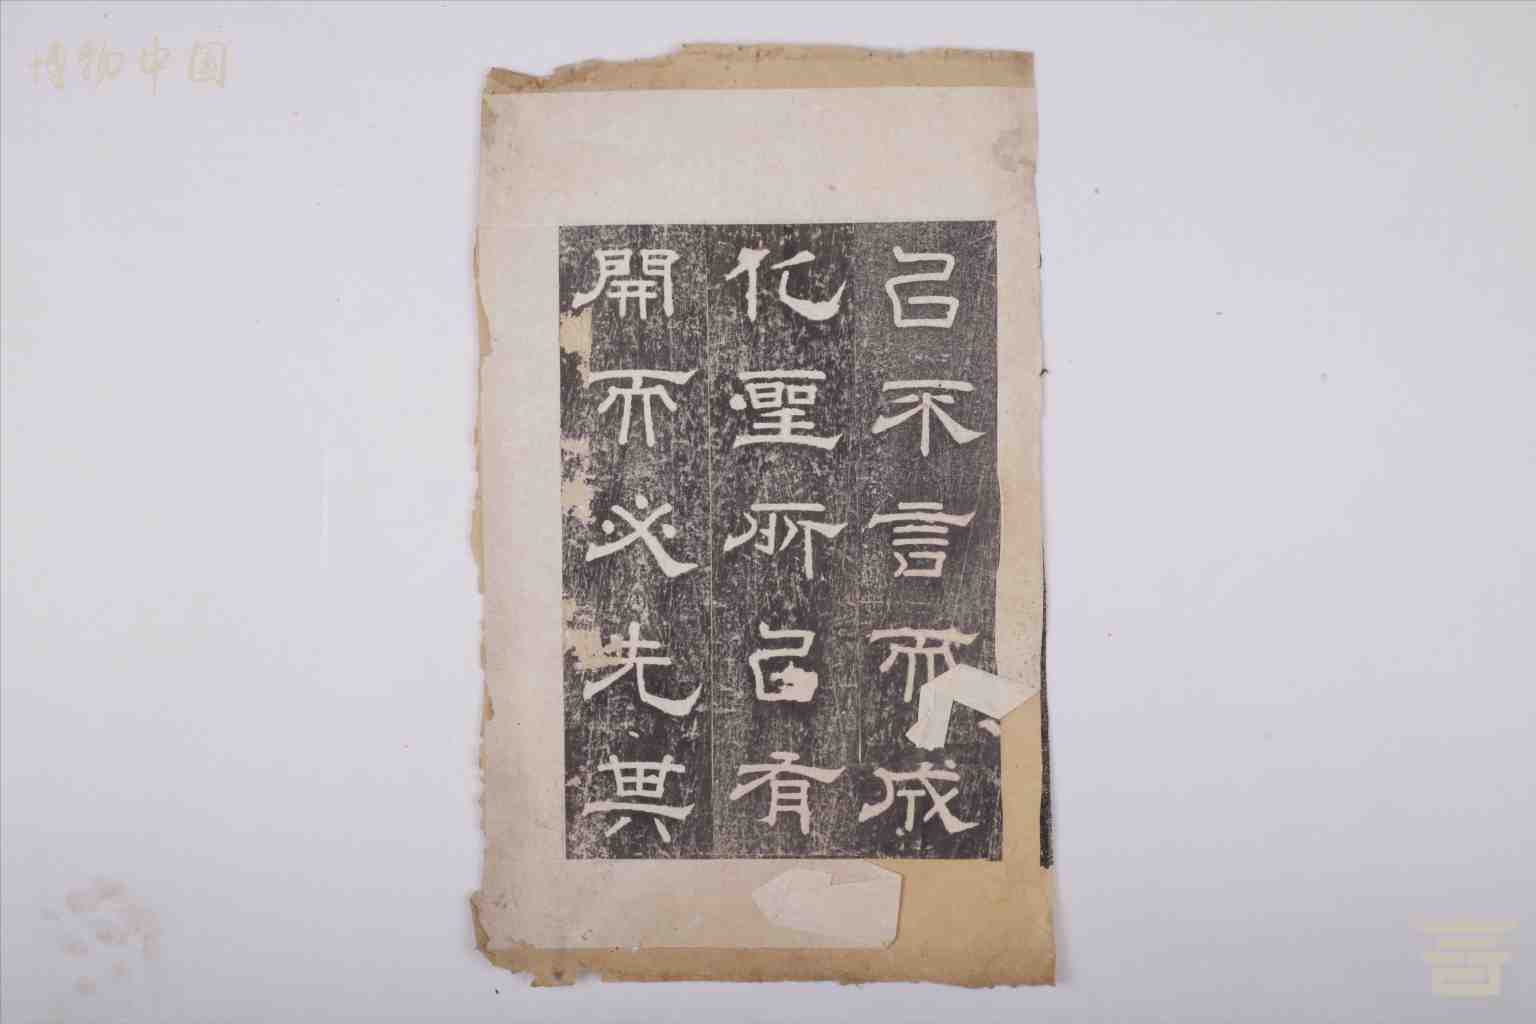 博物中国
㠯不言而成
化聖所㠯有
開而必先其